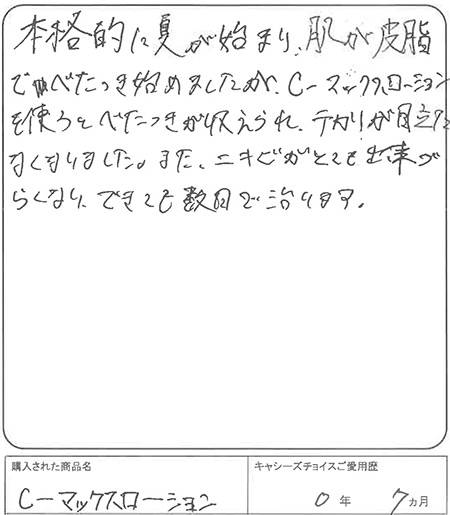 本格的に夏が始まり、肌が皮脂
でべたつき始めましたが、C-マックスローション
を使うとべたつきが収えられ、テカリが目立た
なくなりました。また、ニキビがとても出来づ
らくなり、できても数日で治ります。
購入された商品名
キャシーズチョイスご愛用歴
C-マックスローション
0年 7ヵ月